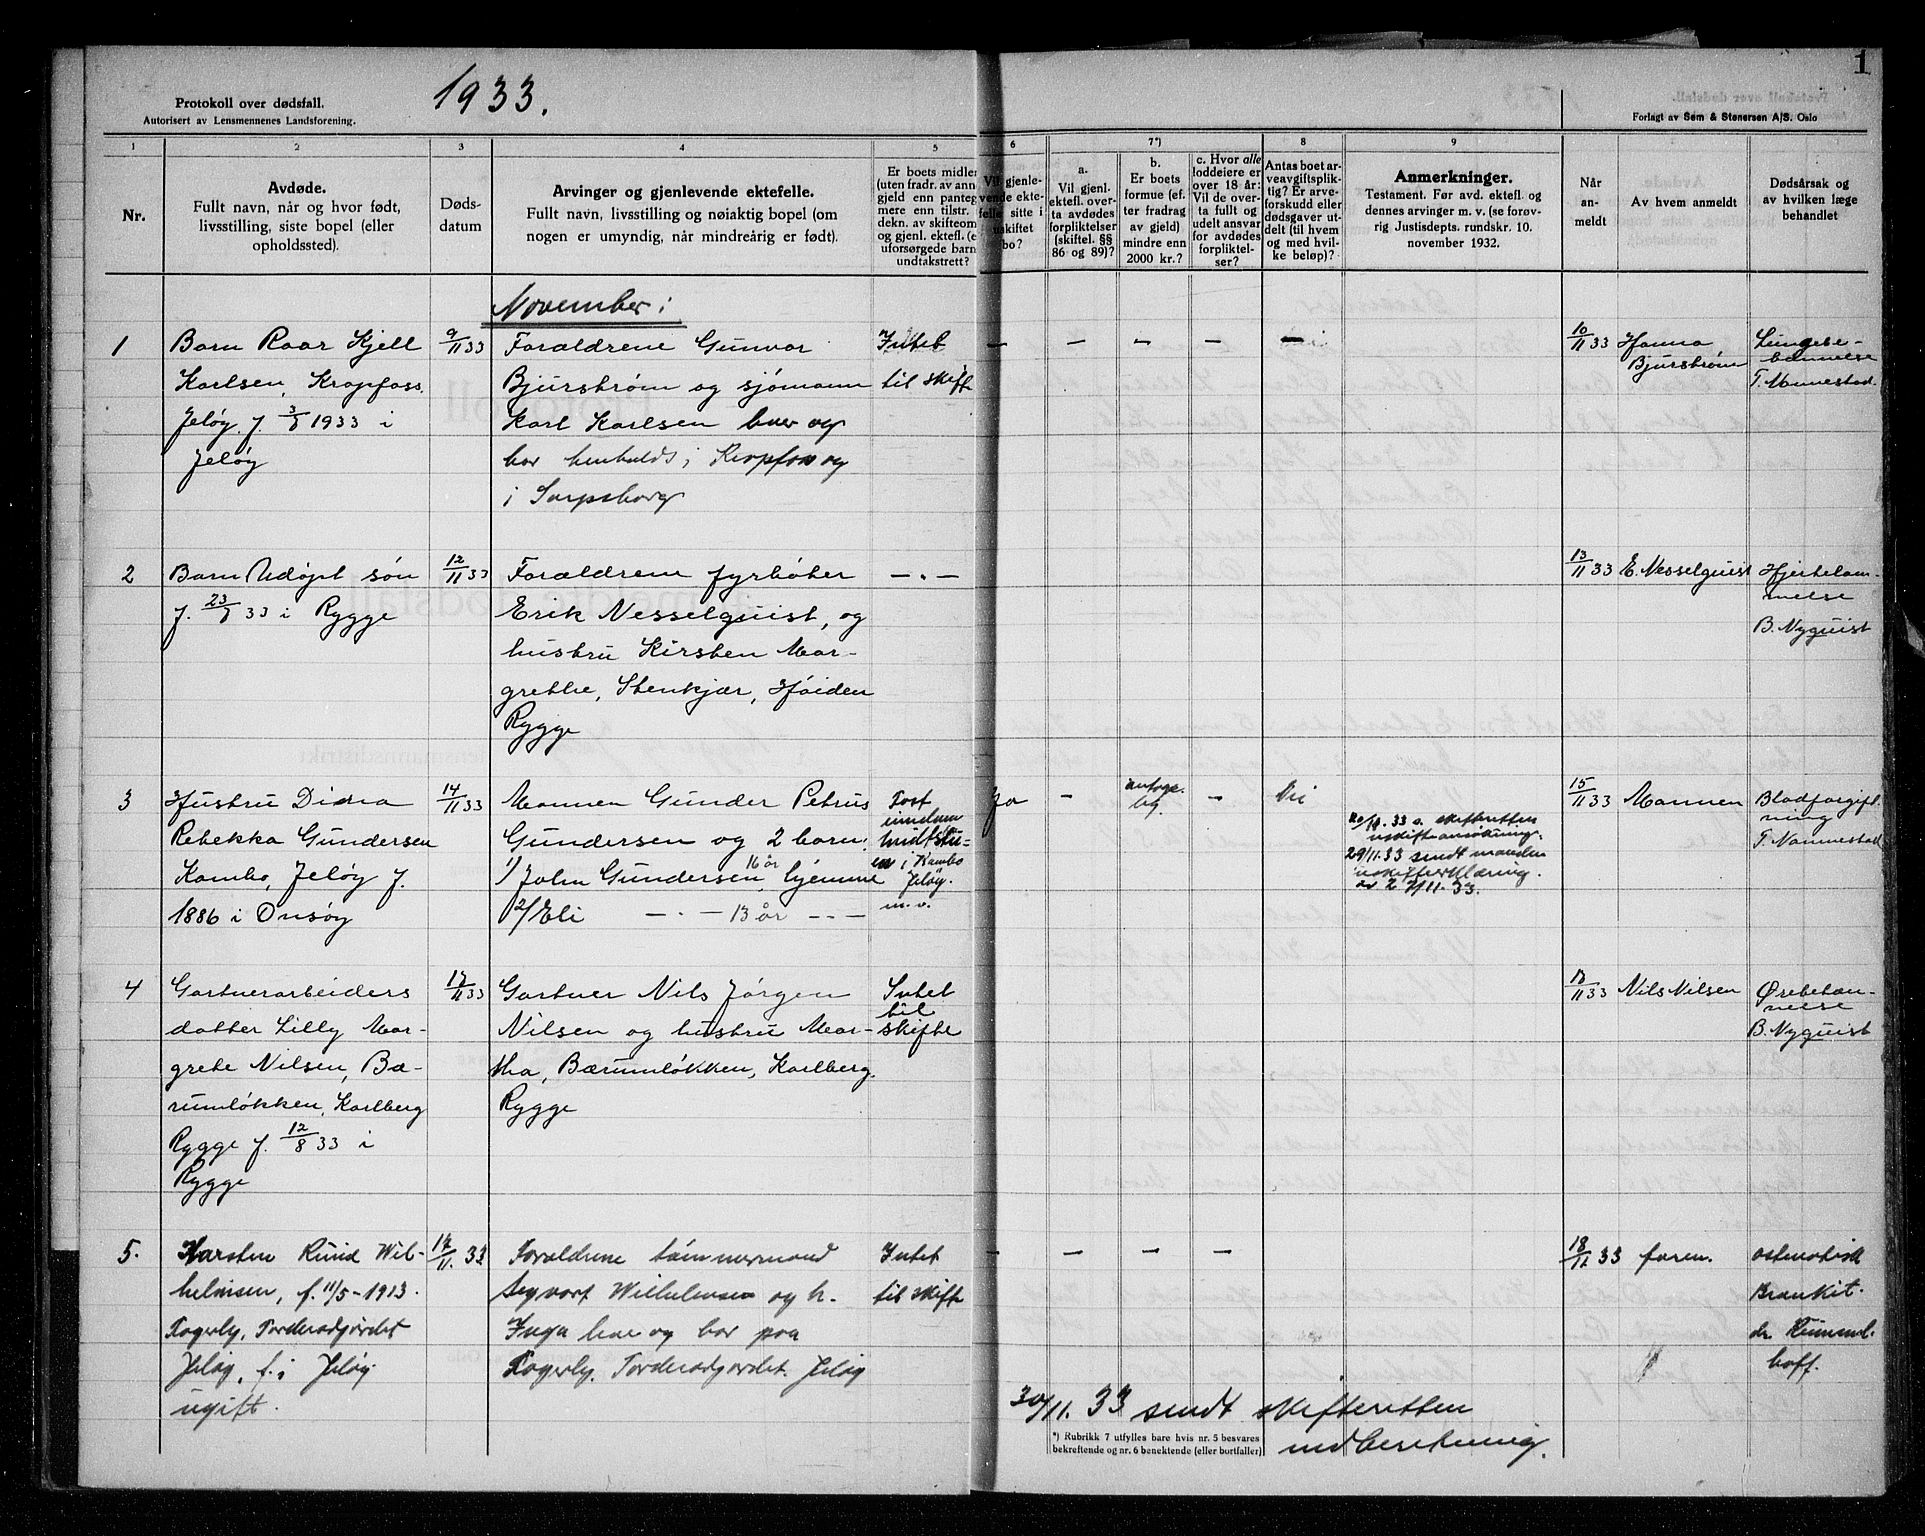 1933.
1
Protokoll over dødsfall.
Autorisert av Lensmennenes Landsforening.
Forlagt av Sem & Stenersen A/S. Oslo
1
2
3
4
5
6
7*)
8
9
Nr.
Avdøde.
Fullt navn, når og hvor født,
livsstilling, siste bopel (eller
opholdssted).
Døds-
datum
Arvinger og gjenlevende ektefelle.
Fullt navn, livsstilling og nøiaktig bopel (om
nogen er umyndig, når mindreårig er født).
Er boets midler
(uten fradr. av ann
gjeld enn panteg
mere enn tilstr.
dekn. av skifteom
og gjenl. ektefl. (e
uforsørgede barn
undtakstrett?
Vil gjenle-
vende ekte-
felle sitte i
uskiftet
bo?
a.
Vil gjenl.
ektefl. over-
ta avdødes
forpliktelser
(skiftel. §§
86 og 89)?
b.
Er boets
formue (ef-
ter fradrag
av gjeld)
mindre enn
2000 kr.?
c. Hvor alle
loddeiere er
over 18 år:
Vil de over-
ta fullt og
udelt ansvar
for avdødes
forpliktel-
ser?
Antas boet ar-
veavgiftsplik-
tig? Er arve-
forskudd eller
dødsgaver ut-
delt (til hvem
og med hvil-
ke beløp)?
Anmerkninger.
Testament. Før avd. ektefl. og
dennes arvinger m. v. (se forøv-
rig Justisdepts. rundskr. 10.
november 1932.
Når
an-
meldt
Av hvem anmeldt
Dødsårsak og
av hvilken læge
behandlet
November:
1
Barn Roar Kjell
Karlsen, Kropfoss
Jeløy. f. 3/5 1933 i
Jeløy
9/11 33
Forældrene Gunvor
Bjurstrøm og sjømann
Karl Karlsen bor og
bor henholds i Kropfoss og
i Sarpsborg
Intet
til skifte
— — — — —
10/11 33
Hanna
Bjurstrøm
Lungebe-
tennelse
T. Nannestad.
2
Barn Udøpt søn
f. 23/8 33 i Rygge
12/11 33
Forældrene fyrbøter
Erik Nesselquist, og
hustru Kirsten Mar-
grethe, Stenkjær, Høiden
Rygge
— „ —
13/11 33
E. Nesselquist
Hjertelam-
melse
B. Nyquist
3
Hustru Didria
Rebekka Gundersen
Kambo, Jeløy f.
1886 i Onsøy
14/11 33
Mannen Gunder Petrus
Gundersen og 2 barn:
1/ John Gundersen 16 år, hjemme
2/ Eli — „ — 13 år — „ —
Fast
eiendom
i Kambo
Jeløy.
m.v.
Ja
—
antage-
lig
—
Nei
29/11. 33 s. skifteretten
uskifteansøkning.
29/11. 33 sendt manden
uskifteerklæring
av 27/11. 33.
15/11 33
Mannen
Blodforgift-
ning
T. Nannestad
4
Gartnerarbeiders
datter Lilly Mar-
grete Nilsen, Bæ-
rumløkken, Karlberg
Rygge f. 12/8 33 i
Rygge
17/11 33
Gartner Nils Jørgen
Nilsen og hustru Mar-
tha, Bærumløkken, Karlberg.
Rygge
Intet
til
skifte
17/11 33
Nils Nilsen
Ørebetæn-
nelse
B. Nyquist
5.
Karsten Ruud Wil-
helmsen, f. 11/5-1913.
Fagerly, Torderødjordet
Jeløy, f. i Jeløy
ugift.
17/11. 33
Foreldrene tømmermand
Sigvart Wilhelmsen og h.
Inga bor og bor paa
Fagerly. Torderødjordet. Jeløy
Intet
til skifte
— — — — —
18/11 33
faren.
Bronkit.
dr. Rummel-
hoff.
30/11. 33 sendt skifteretten
indberetning.
*) Rubrikk 7 utfylles bare hvis nr. 5 besvares
bekreftende og nr. 6 benektende (eller bortfaller)